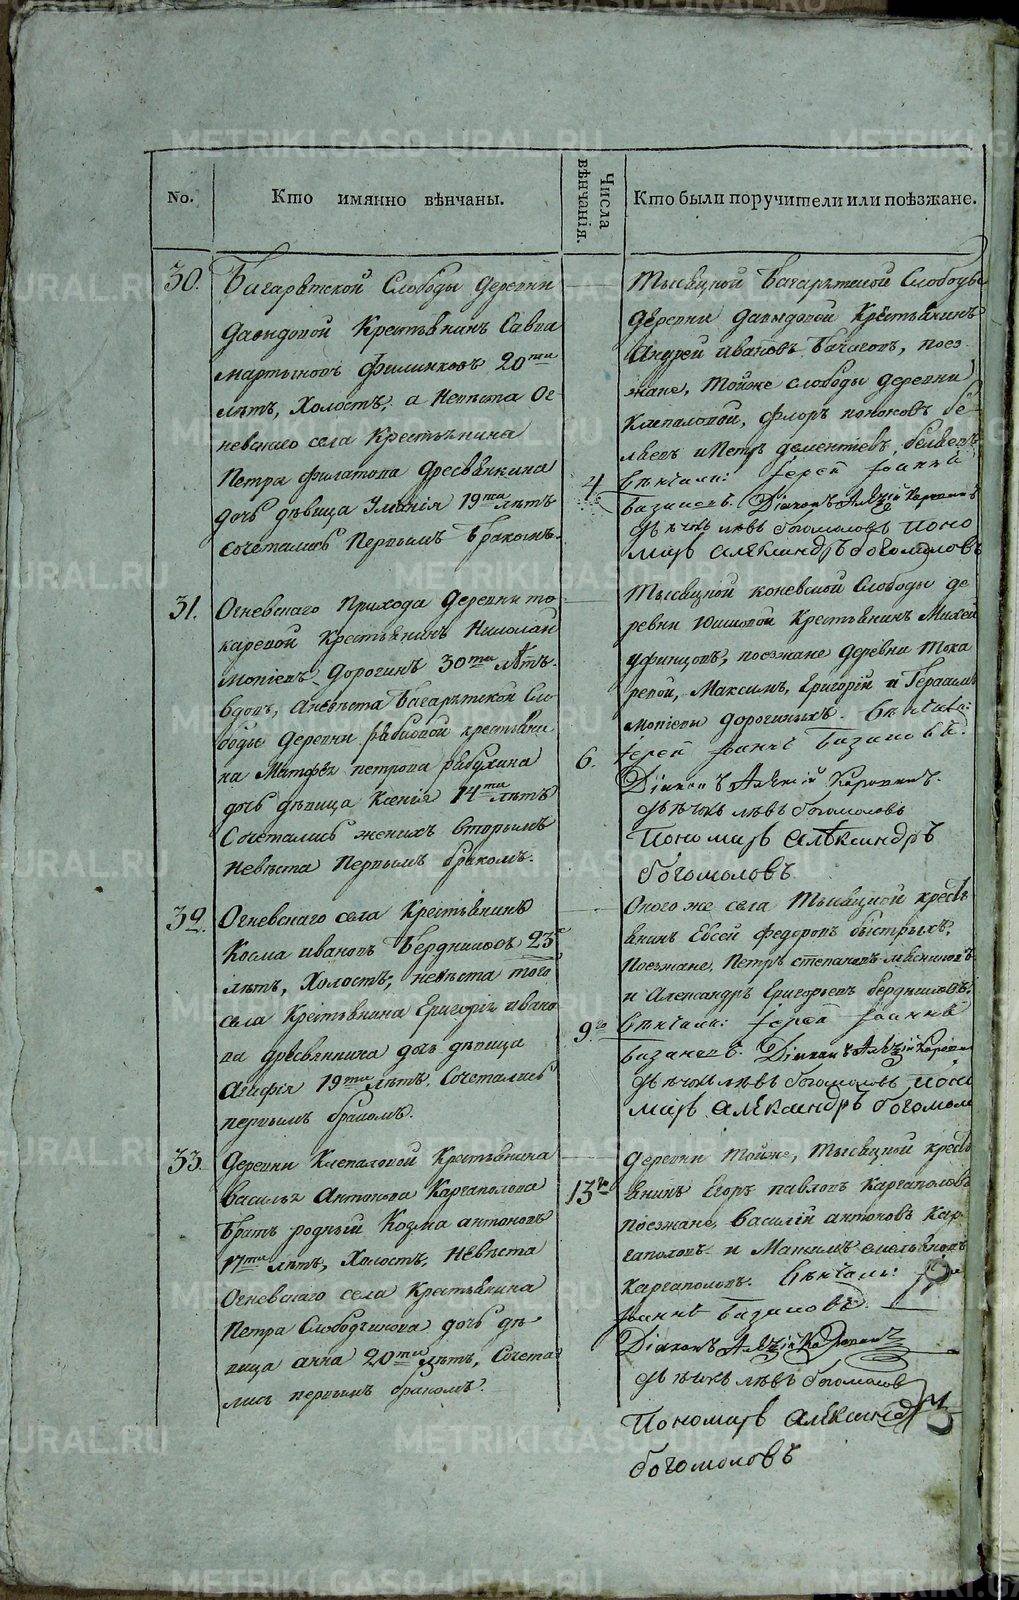 No.
Кто имянно вѣнчаны.
Числа вѣнчанія.
Кто были поручители или поѣзжане.
30.
Багаряцкой Слободы деревни
давыдовой Крестьянинъ Савва
мартыновъ Филинковъ 20ти
лѣтъ, Холостъ, а Невѣста Ог-
невскаго села Крестьянина
Петра Филатова дресвянкина
дочь дѣвица 19ти лѣтъ
сочетались Первымъ бракомъ.
4
Тысяцкой Багаряцкой Слободы
деревни давыдовой Крестьянинъ
Андрей ивановъ, поез-
жане, тойже слободы деревни
Клепаловой, флоръ бе-
ляевъ и Петръ дементьевъ беляевъ
Вѣнчали: Іерей Іоаннъ
Базановъ. Діаконъ Алексій
Дьячокъ левъ богомоловъ Поно
марь александръ богомоловъ
31.
Огневскаго Прихода деревни то-
каревой Крестьянинъ Николай
моѵсеевъ дорогинъ 30ти лѣтъ.
Вдовъ, Аневѣста Багаряцкой Сло
боды деревни крестьяни
на Матфея петрова рябухина
дочь дѣвица Ксенія 19ти лѣтъ
Сочетались женихъ вторымъ
невѣста первымъ бракомъ.
6.
Тысяцкой коневской Слободы де
ревни Юшковой Крестьянинъ Михей
уфинцовъ, поезжане деревни Тока
ревой, Максимъ, Григорій и Герасимъ
дорогиныхъ. Вѣнчали:
Іерей Іоаннъ Базановъ.
Діаконъ Алексій
Дьячокъ левъ богомоловъ
Пономарь александръ
богомоловъ
32.
Огневскаго села Крестьянинъ
Косма ивановъ Бердниковъ 23
лѣтъ, Холостъ, невѣста того
села Крестьянина Григорія ивано
ва дресвянкина дочь дѣвица
Агафія 19ти лѣтъ. Сочетались
первымъ бракомъ.
9го
Оного же села Тысяцкой кресть
янинъ Евсей Федоровъ быстрыхъ,
Поезжане, Петръ степановъ мясниковъ
и Александръ Григорьевъ бердниковъ.
Вѣнчали: Іерей Іоаннъ
Базановъ. Діаконъ Алексій
Дьячокъ левъ богомоловъ Поно
марь александръ богомоло
33.
Деревни Клепаловой Крестьянина
Василья Антонова Каргаполова
братъ родный Козма антоновъ
17ти лѣтъ, Холостъ, Невѣста
Огневскаго села Крестьянина
Петра Слободчикова дочь дѣ-
вица анна 20ти лѣтъ, Сочета-
лись первымъ бракомъ.
13го
Деревни Тойже, Тысяцкой кресть
янинъ Егоръ павловъ Каргаполовъ
Поезжане, Василій антоновъ Кар-
гаполовъ и Максимъ емельяновъ
Каргаполовъ. Вѣнчали:
Іоаннъ Базановъ.
Діаконъ Алексій
Дьячокъ левъ богомолов
Пономарь александръ
богомоловъ
METRIKI.GASO-URAL.RU